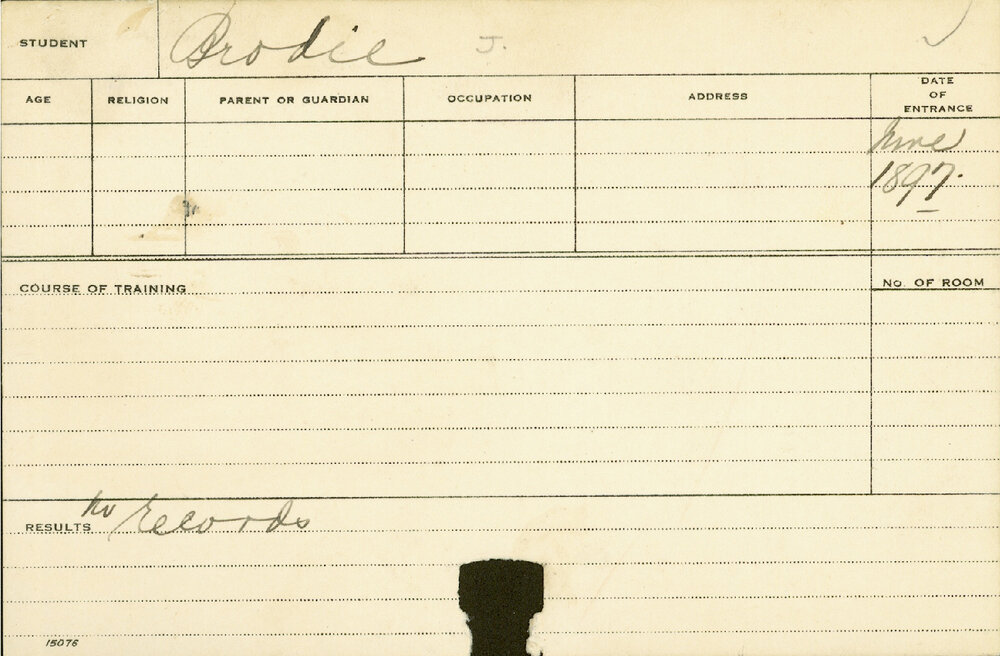 STUDENT Brodie J.
AGE RELIGION PARENT OR GUARDIAN OCCUPATION ADDRESS DATE OF ENTRANCE
June
1897.
COURSE OF TRAINING No. OF ROOM
RESULTS No Records
15076